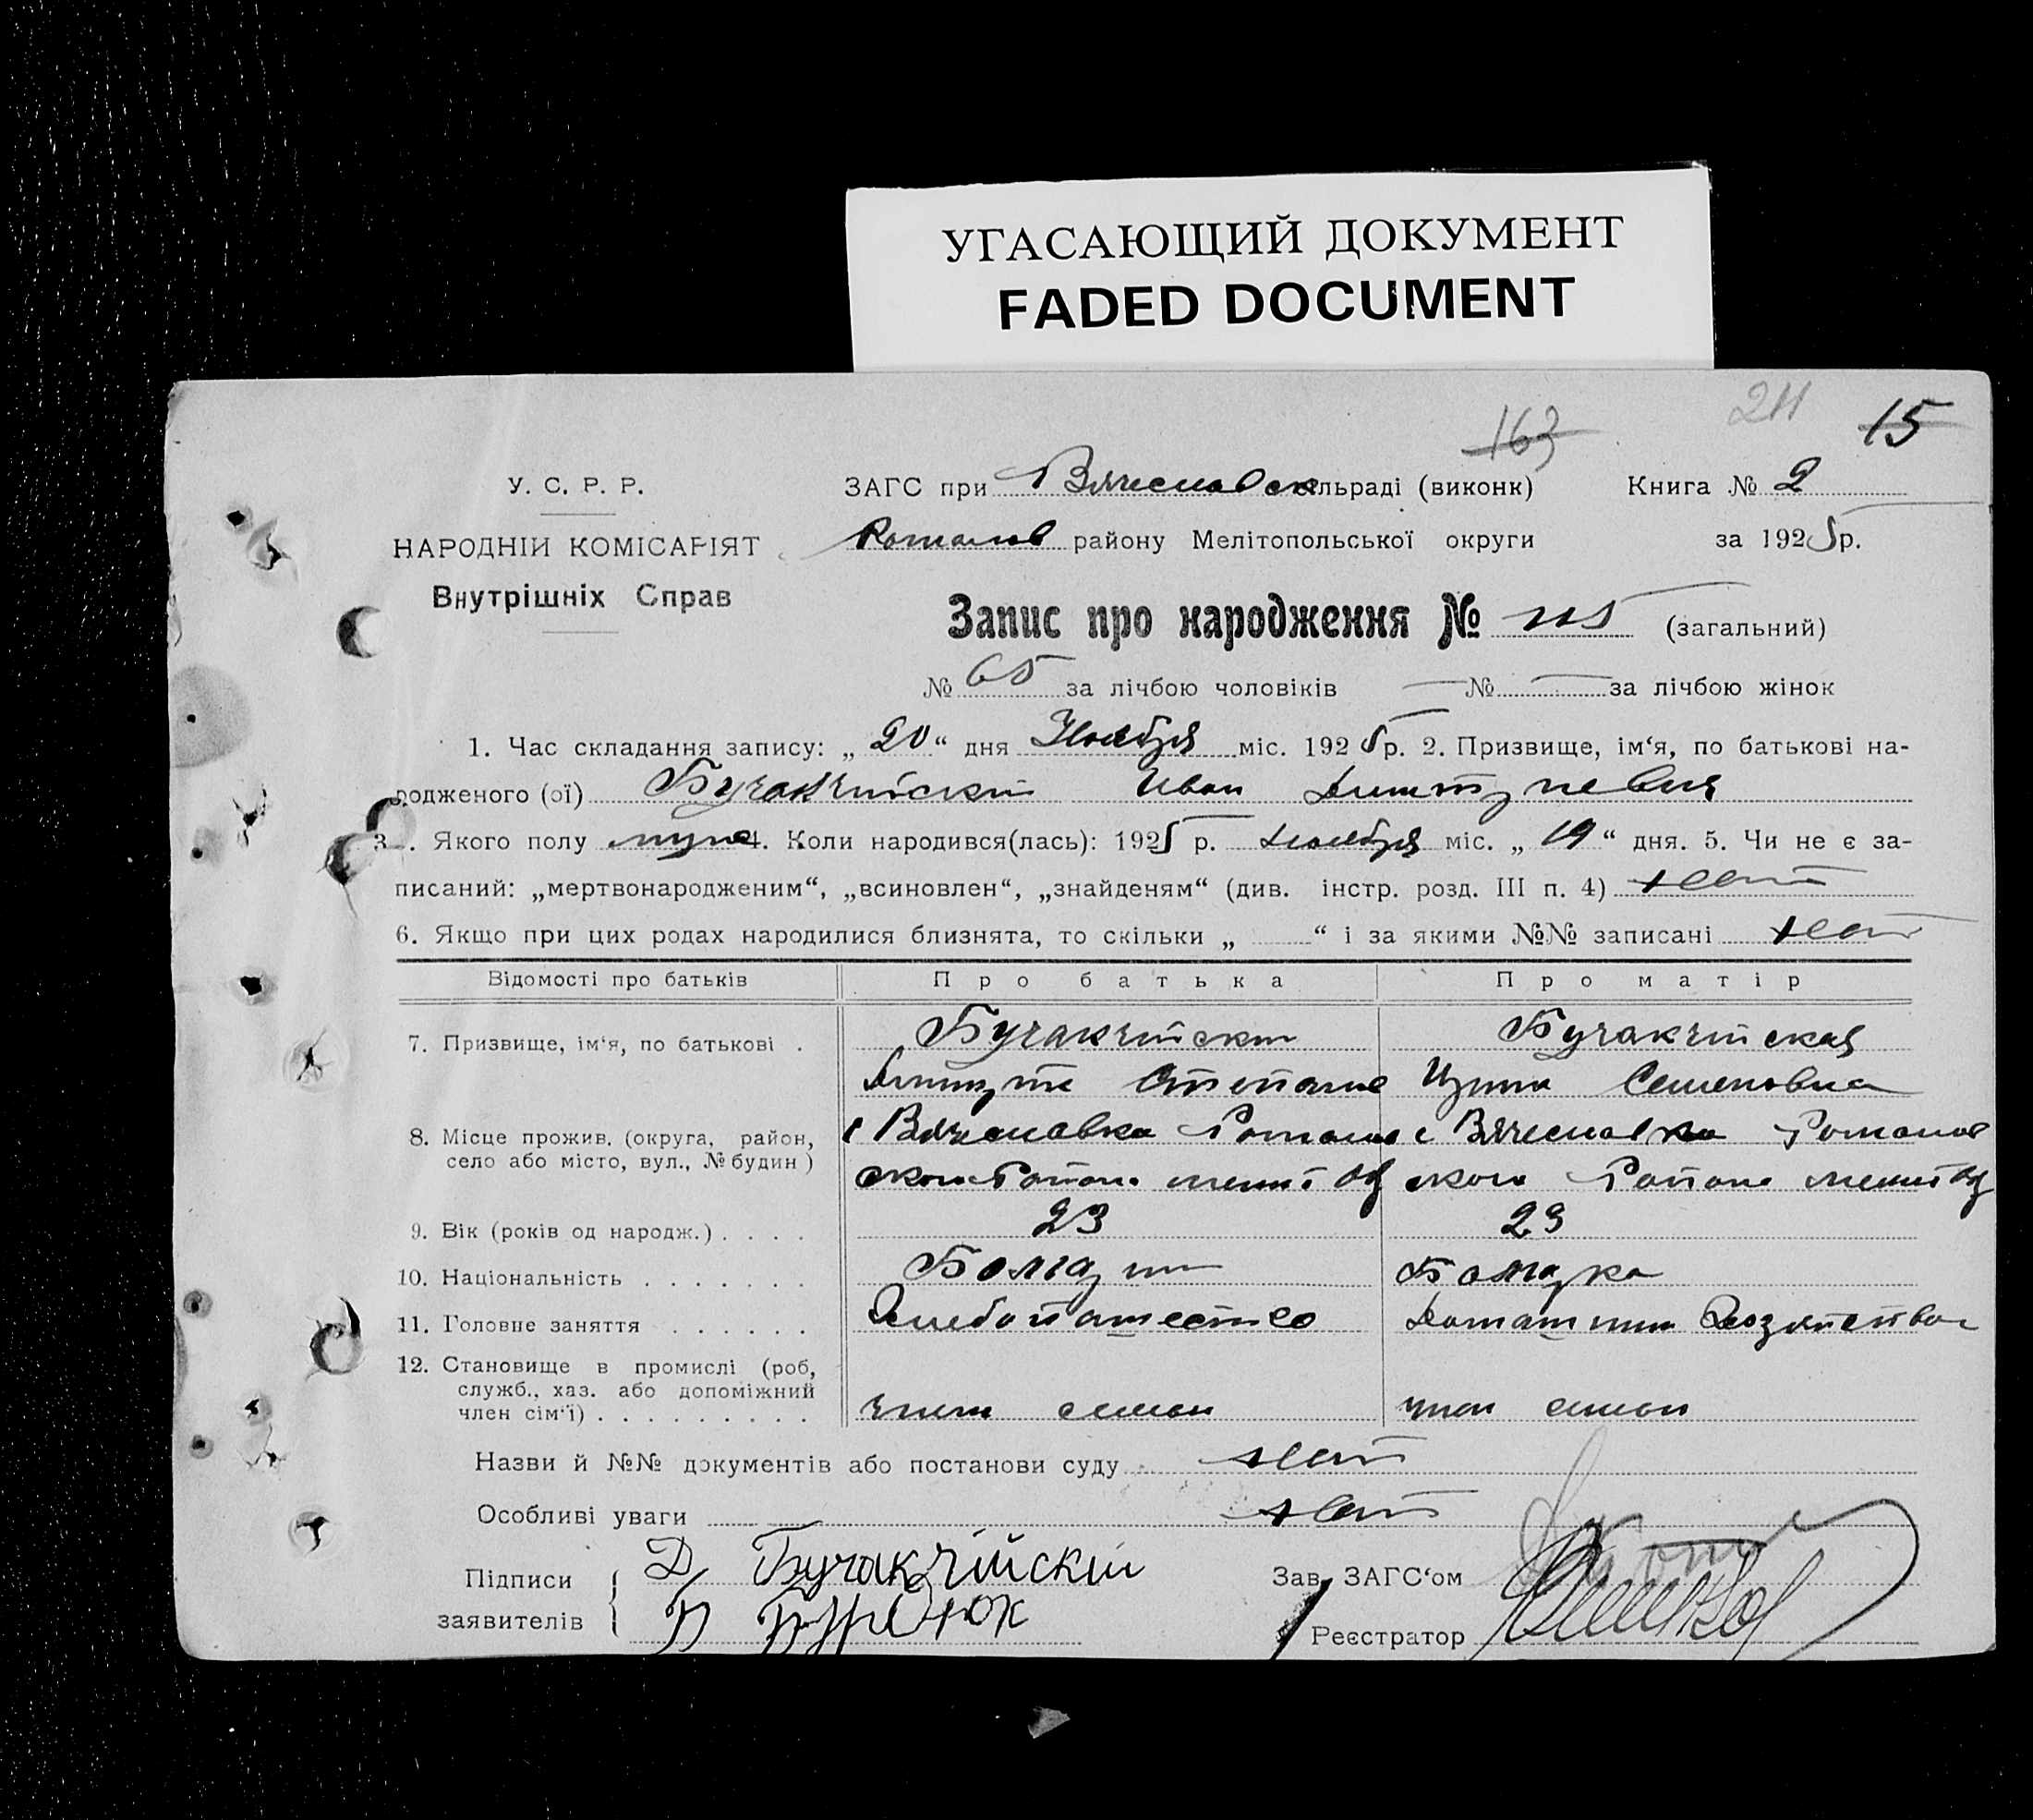 УГАСАЮЩИЙ ДОКУМЕНТ
FADED DOCUMENT
163 15
У. С. Р. Р. ЗАГС при Вячеславск сільраді (виконк) Книга № 2
НАРОДНІЙ КОМІСАРІЯТ Романов району Мелітопольської округи за 1925 р.
Внутрішніх Справ
Запис про народження № 115 (загальний)
№ 65 за лічбою чоловіків — № — за лічбою жінок
1. Час складання запису: „ 20 “ дня Ноября міс. 1925 р. 2. Призвище, ім‘я, по батькові на-
родженого (ої) Бучакчийский Иван
3. Якого полу муж 4. Коли народився(лась): 1925 р. ноября міс. „ 19 “ дня. 5. Чи не є за-
писаний: „мертвонародженим“, „всиновлен“, „знайденям“ (див. інстр. розд. III п. 4) нет
6. Якщо при цих родах народилися близнята, то скільки „ “ і за якими №№ записані нет
Відомості про батьків Про батька Про матір
7. Призвище, ім‘я, по батькові . Бучакчийский Бучакчийская
Семеновна
8. Місце прожив. (округа, район, с Вячеславка Романов с Вячеславка Романов
село або місто, вул., № будин) ского Района мелит ского Района мелит
9. Вік (років од народж.) . . . . 23 23
10. Національність . . . . . . . Болгарин Болгарка
11. Головне заняття . . . . . . Хлебопашество Домашнин Хозяйство
12. Становище в промислі (роб,
служб., хаз. або допоміжний
член сім‘ї) . . . . . . . . . член семьи член семьи
Назви й №№ документів або постанови суду нет
Особливі уваги нет
Підписи Д Бучакчійскій Зав. ЗАГС‘ом
заявителів Реєстратор